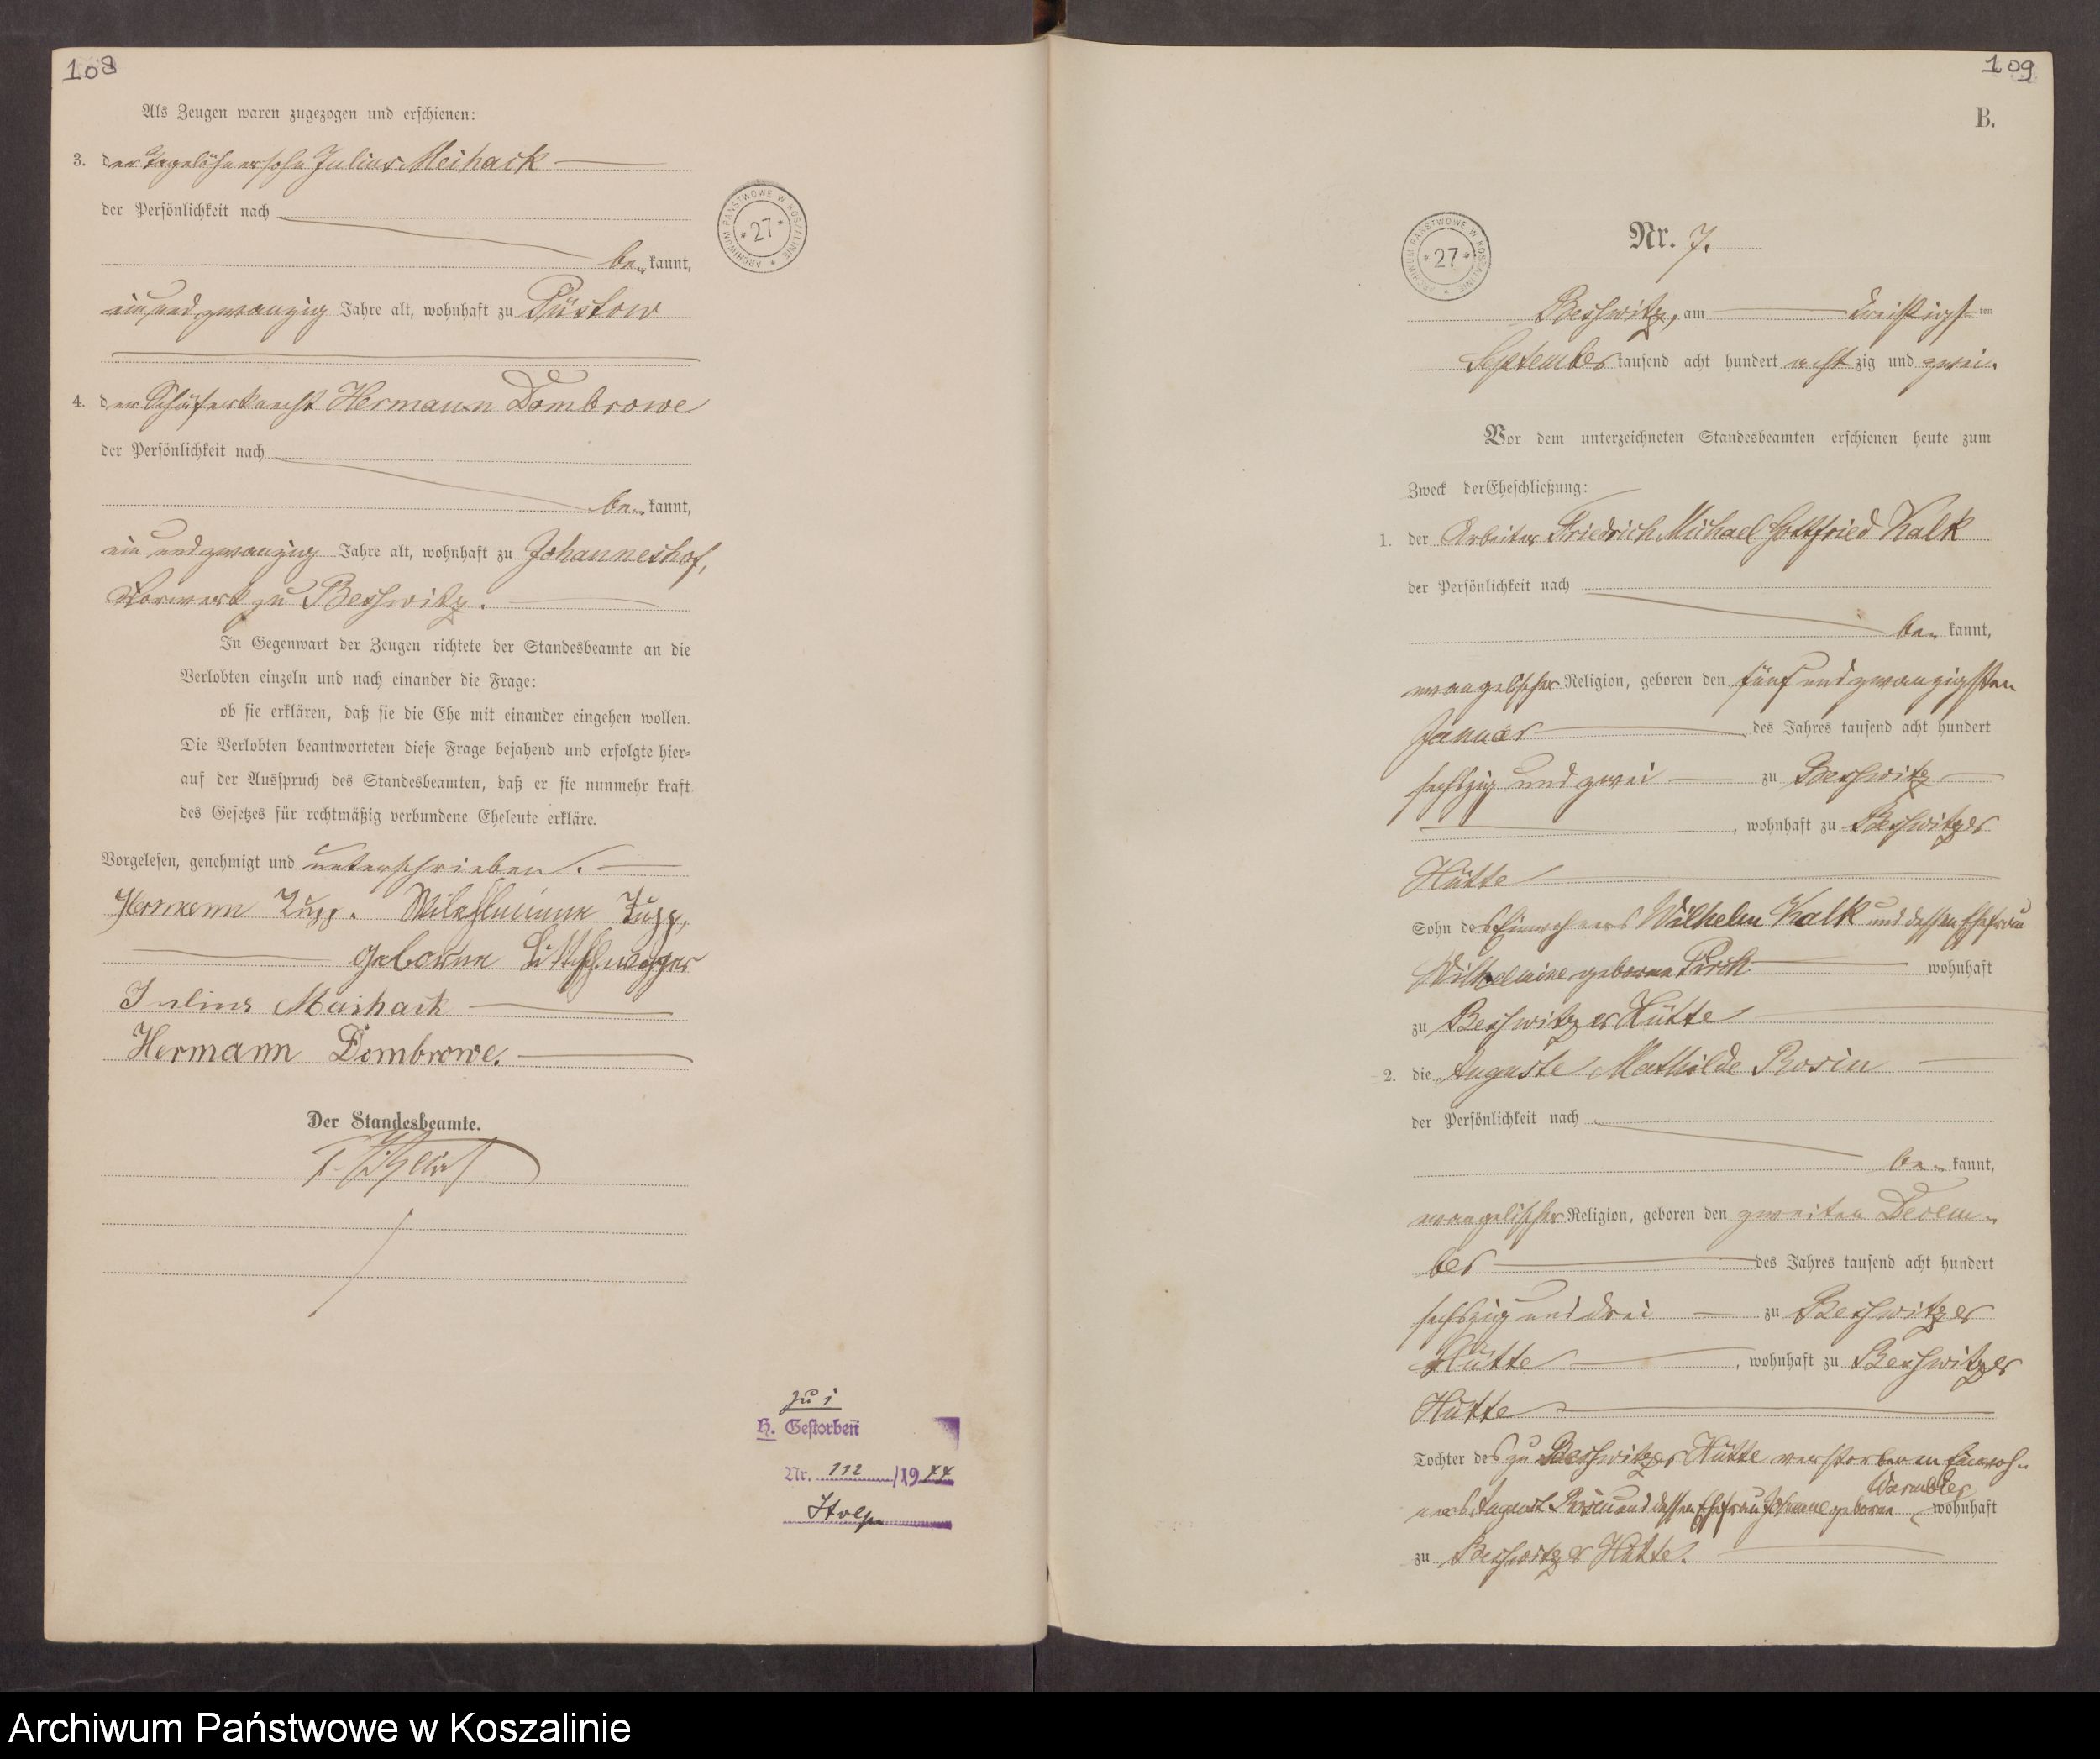 108
Als Zeugen waren zugezogen und erschienen:
3. der Tagelöhnersohn Julius Meihack
der Persönlichkeit nach
be= kannt,
ein und zwanzig Jahre alt, wohnhaft zu Püstow
4. der Schäferknecht Hermann Dombrowe
der Persönlichkeit nach
be= kannt,
ein und zwanzig Jahre alt, wohnhaft zu Johanneshof,
Vorwerk zu Beßwitz.
In Gegenwart der Zeugen richtete der Standesbeamte an die
Verlobten einzeln und nach einander die Frage:
ob sie erklären, daß sie die Ehe mit einander eingehen wollen.
Die Verlobten beantworteten diese Frage bejahend und erfolgte hier=
auf der Ausspruch des Standesbeamten, daß er sie nunmehr kraft
des Gesetzes für rechtmäßig verbundene Eheleute erkläre.
Vorgelesen, genehmigt und unterschrieben.
Hermann
geborne
Julius Maihack
Hermann Dombrowe.
Der Standesbeamte.
ARCHIWUM PAŃSTWOWE W KOSZALINIE
* 27 *
zu 1
H. Gestorben
Nr. 112 /1944
Stolp
109
B.
ARCHIWUM PAŃSTWOWE W KOSZALINIE
* 27 *
Nr. 7.
Beßwitz, am dreißigsten
September tausend acht hundert achtzig und zwei.
Vor dem unterzeichneten Standesbeamten erschienen heute zum
Zweck der Eheschließung:
1. der Arbeiter Friedrich Michael Gottfried Kalk
der Persönlichkeit nach
be= kannt,
evangelischer Religion, geboren den fünf und zwanzigsten
Januar des Jahres tausend acht hundert
sechszig und zwei zu Beßwitz
, wohnhaft zu Beßwitzer
Hütte
Sohn des Einwohners Wilhelm Kalk und dessen Ehefrau
Wilhelmine geborne Pirch wohnhaft
zu Beßwitzer Hütte
2. die Auguste Mathilde Rosin
der Persönlichkeit nach
be= kannt,
evangelischer Religion, geboren den zweiten Decem=
ber des Jahres tausend acht hundert
sechszig und drei zu Beßwitzer
Hütte, wohnhaft zu Beßwitzer
Hütte
Tochter des zu Beßwitzer Hütte verstorbenen Einwoh=
ners August Rosin und dessen Ehefrau Johanne geborne Warmbier wohnhaft
zu Beßwitzer Hütte.
Archiwum Państwowe w Koszalinie